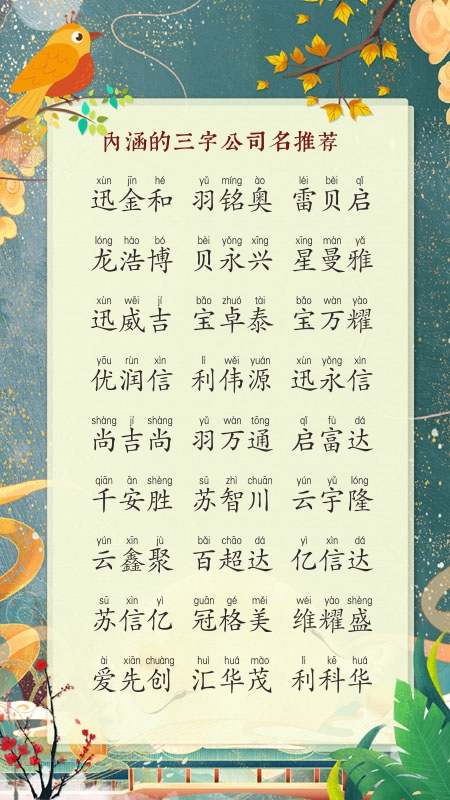 内涵的三字公司名推荐
xùn jīn hé yǔ míng ào léi bèi qǐ
迅金和 羽铭奥 雷贝启
lóng hào bó bèi yǒng xīng xīng màn yǎ
龙浩博 贝永兴 星曼雅
xùn wēi jí bǎo zhuó tài bǎo wàn yào
迅威吉 宝卓泰 宝万耀
yōu rùn xìn lì wěi yuán xùn yǒng xìn
优润信 利伟源 迅永信
shàng jí shàng yǔ wàn tōng qǐ fù dá
尚吉尚 羽万通 启富达
qiān ān shèng sū zhì chuān yún yǔ lóng
千安胜 苏智川 云宇隆
yún xīn jù bǎi chāo dá yì xìn dá
云鑫聚 百超达 亿信达
sū xìn yì guān gé měi wéi yào shèng
苏信亿 冠格美 维耀盛
ài xiān chuàng huì huá mào lì kē huá
爱先创 汇华茂 利科华